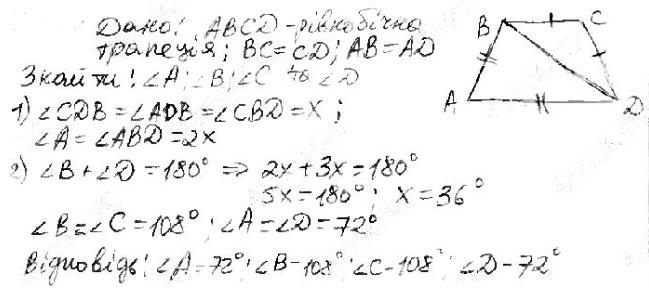 Дано: ABCD - рівнобічна
трапеція; BC = CD; AB = AD
Знайти: ∠A; ∠B; ∠C та ∠D
1) ∠CDB = ∠ADB = ∠CBD = x;
∠A = ∠ABD = 2x
2) ∠B + ∠D = 180° ⇒ 2x + 3x = 180°
5x = 180°; x = 36°
∠B = ∠C = 108°; ∠A = ∠D = 72°
Відповідь: ∠A - 72°; ∠B - 108°; ∠C - 108°; ∠D - 72°
B C
A D